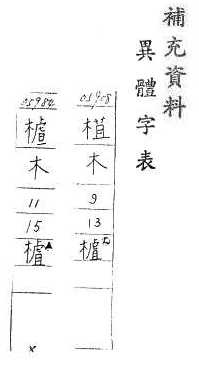 補充資料
異體字表
木
9
13
樝
05984
樝
木
11
15
樝▲
x